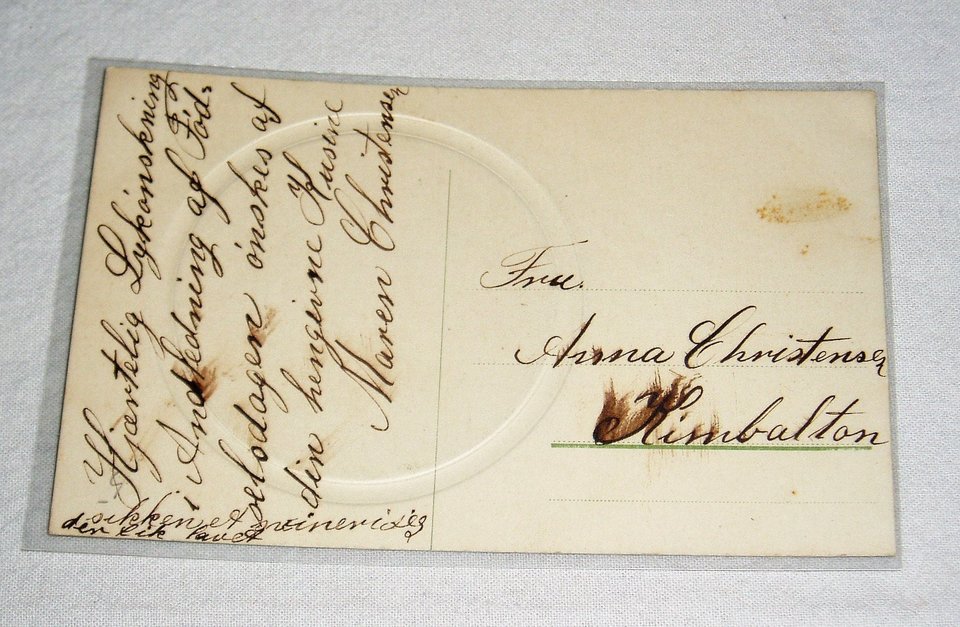 Hjærtelig Lykønskning
i Andledning af Fød=
selsdagen ønskes af
din hengivne Kusine
Maren Christensen
den fik lavet
Fru.
Anna Christensen
Kimbalton